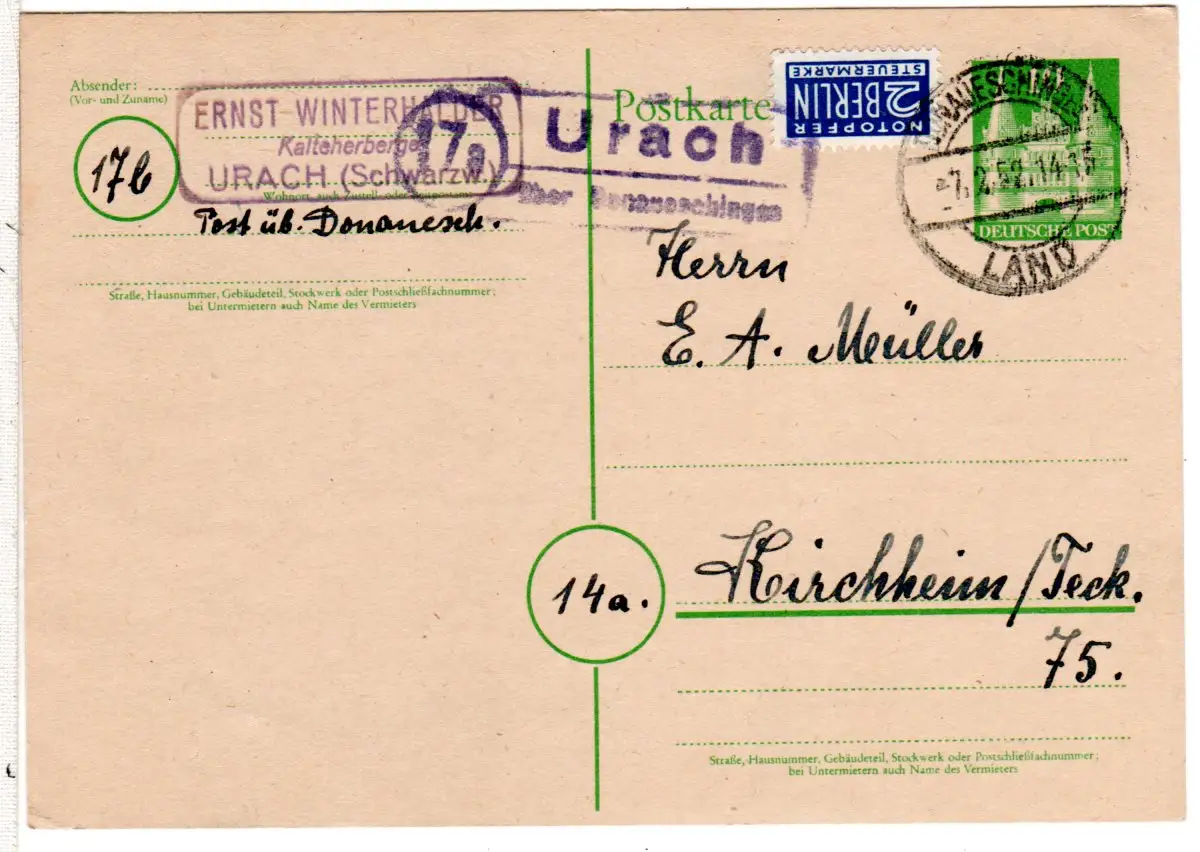 Absender:
(Vor- und Zuname)
17b
ERNST WINTERHALDER
Kalteherberge
URACH (Schwarzw.)
Wohnort, auch Zustell- oder Leitpostamt
Post üb. Donauesch.
Straße, Hausnummer, Gebäudeteil, Stockwerk oder Postschließfachnummer;
bei Untermietern auch Name des Vermieters
17a
Urach
über Donaueschingen
Postkarte
NOTOPFER
2 BERLIN
STEUERMARKE
DONAUESCHINGEN
-7.2.52.14
LAND
DEUTSCHE POST
Herrn
E. A. Müller
14a.
Kirchheim/Teck.
75.
Straße, Hausnummer, Gebäudeteil, Stockwerk oder Postschließfachnummer;
bei Untermietern auch Name des Vermieters